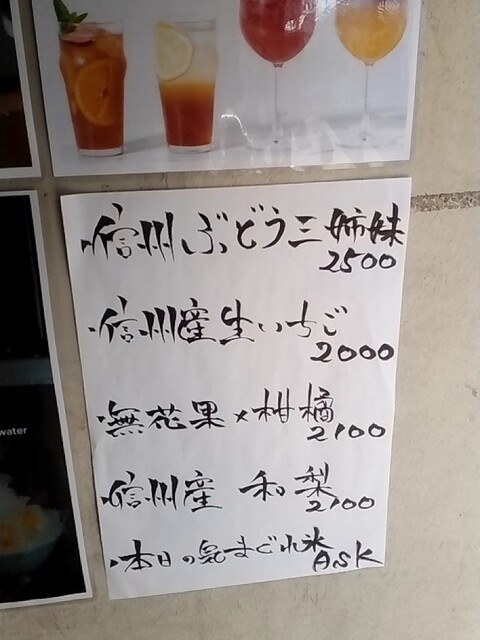 ・信州ぶどう三姉妹
2500
・信州産生いちご
2000
・無花果×柑橘
2100
・信州産 和梨
2100
・本日の気まぐれ氷
ASK
water